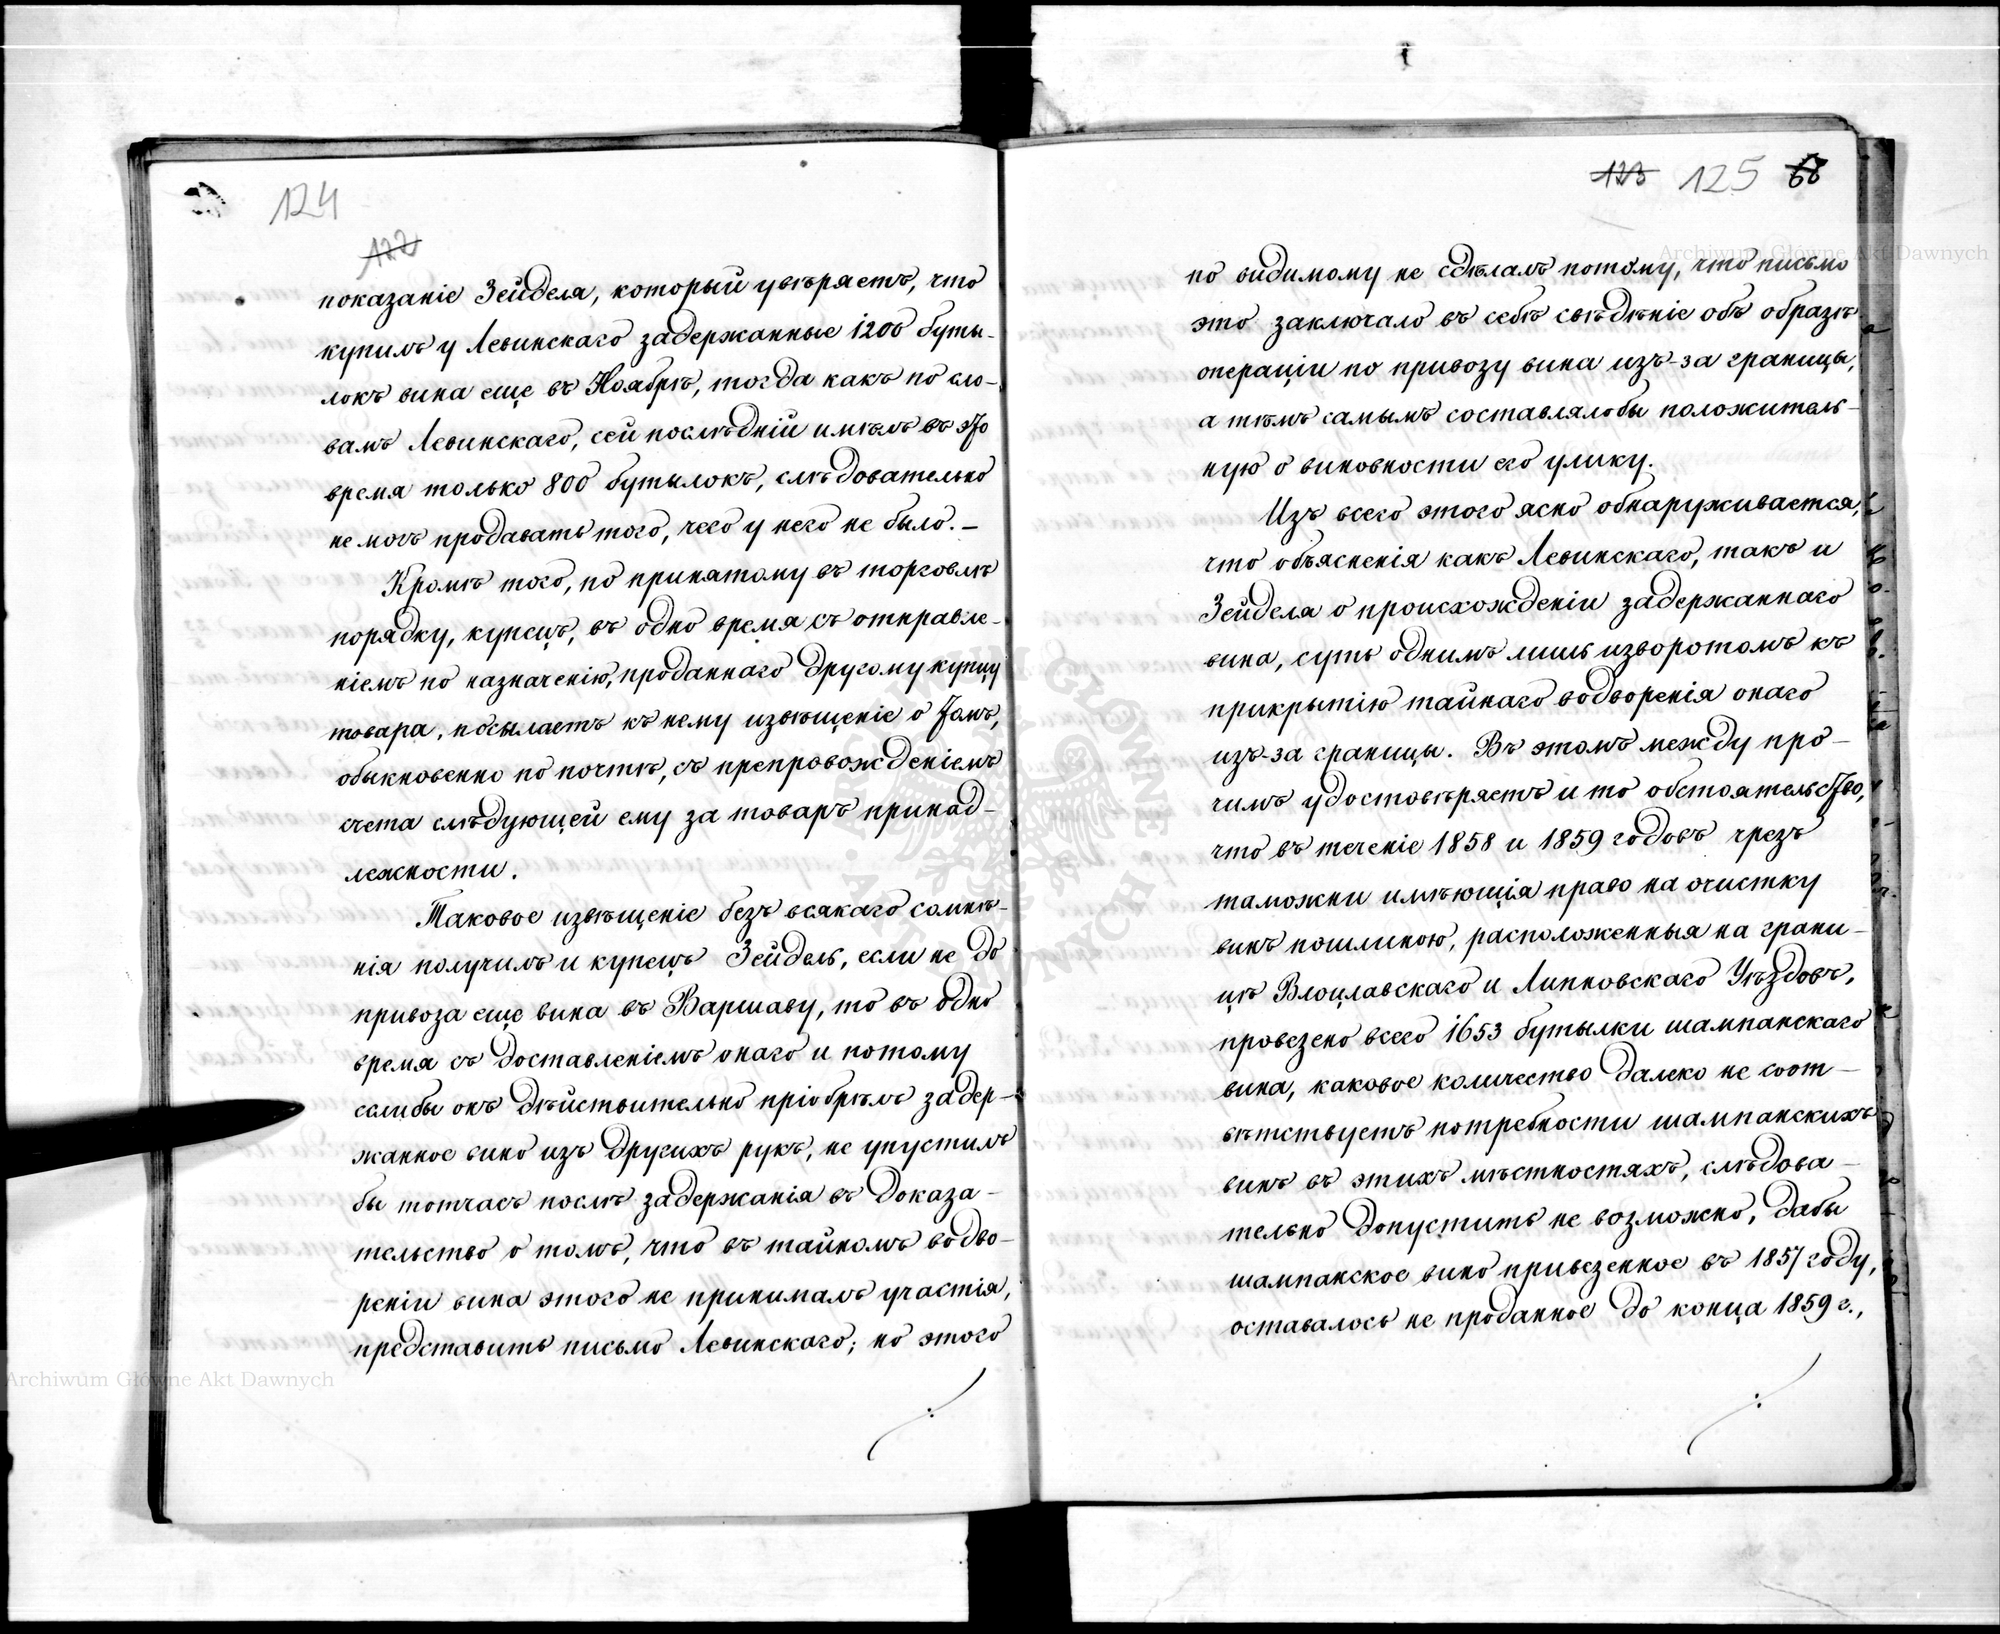 124
122
показаніе Зейделя, который увѣряетъ, что
купилъ у Левинскаго задержанные 1200 буты-
локъ вина еще въ Ноябрѣ, тогда какъ по сло-
вамъ Левинскаго, сей послѣдній имѣлъ въ это
время только 800 бутылокъ, слѣдовательно
не могъ продавать того, чего у него не было. –
Кромѣ того, по принятому въ торговлѣ
порядку, купецъ, въ одно время съ отправле-
ніемъ по назначенію, проданнаго другому купцу
товара, посылаетъ къ нему извѣщеніе о томъ,
обыкновенно по почтѣ, съ препровожденіемъ
счета слѣдующей ему за товаръ принад-
лежности.
Таковое извѣщеніе безъ всякаго сомнѣ-
нія получилъ и купецъ Зейдель, если не до
привоза еще вина въ Варшаву, то въ одно
время съ доставленіемъ онаго и потому
еслибы онъ дѣйствительно пріобрѣлъ задер-
жанное вино изъ другихъ рукъ, не упустилъ
бы тотчасъ послѣ задержанія въ доказа-
тельство о томъ, что въ тайномъ водво-
реніи вина этого не принималъ участія,
представить письмо Левинскаго; но этого
123 125 66
по видимому не сдѣлалъ потому, что письмо
это заключало въ себѣ свѣдѣніе объ образѣ
операціи по привозу вина изъ-за границы,
а тѣмъ самымъ составлялобы положитель-
ную о виновности его улику.
Изъ всего этого ясно обнаруживается,
что объясненія какъ Левинскаго, такъ и
Зейделя о происхожденіи задержаннаго
вина, суть однимъ лишь изворотомъ къ
прикрытію тайнаго водворенія онаго
изъ-за границы. Въ этомъ между про-
чимъ удостовѣряетъ и то обстоятельство,
что въ теченіе 1858 и 1859 годовъ чрезъ
таможни имѣющія право на очистку
винъ пошлиною, расположенныя на грани-
цѣ Влоцлавскаго и Липновскаго Уѣздовъ,
провезено всего 1653 бутылки шампанскаго
вина, каковое количество далеко не соот-
вѣтствуетъ потребности шампанскихъ
винъ въ этихъ мѣстностяхъ, слѣдова-
тельно допустить не возможно, дабы
шампанское вино привезенное въ 1857 году,
оставалось не проданное до конца 1859 г.,
Archiwum Główne Akt Dawnych
Archiwum Główne Akt Dawnych